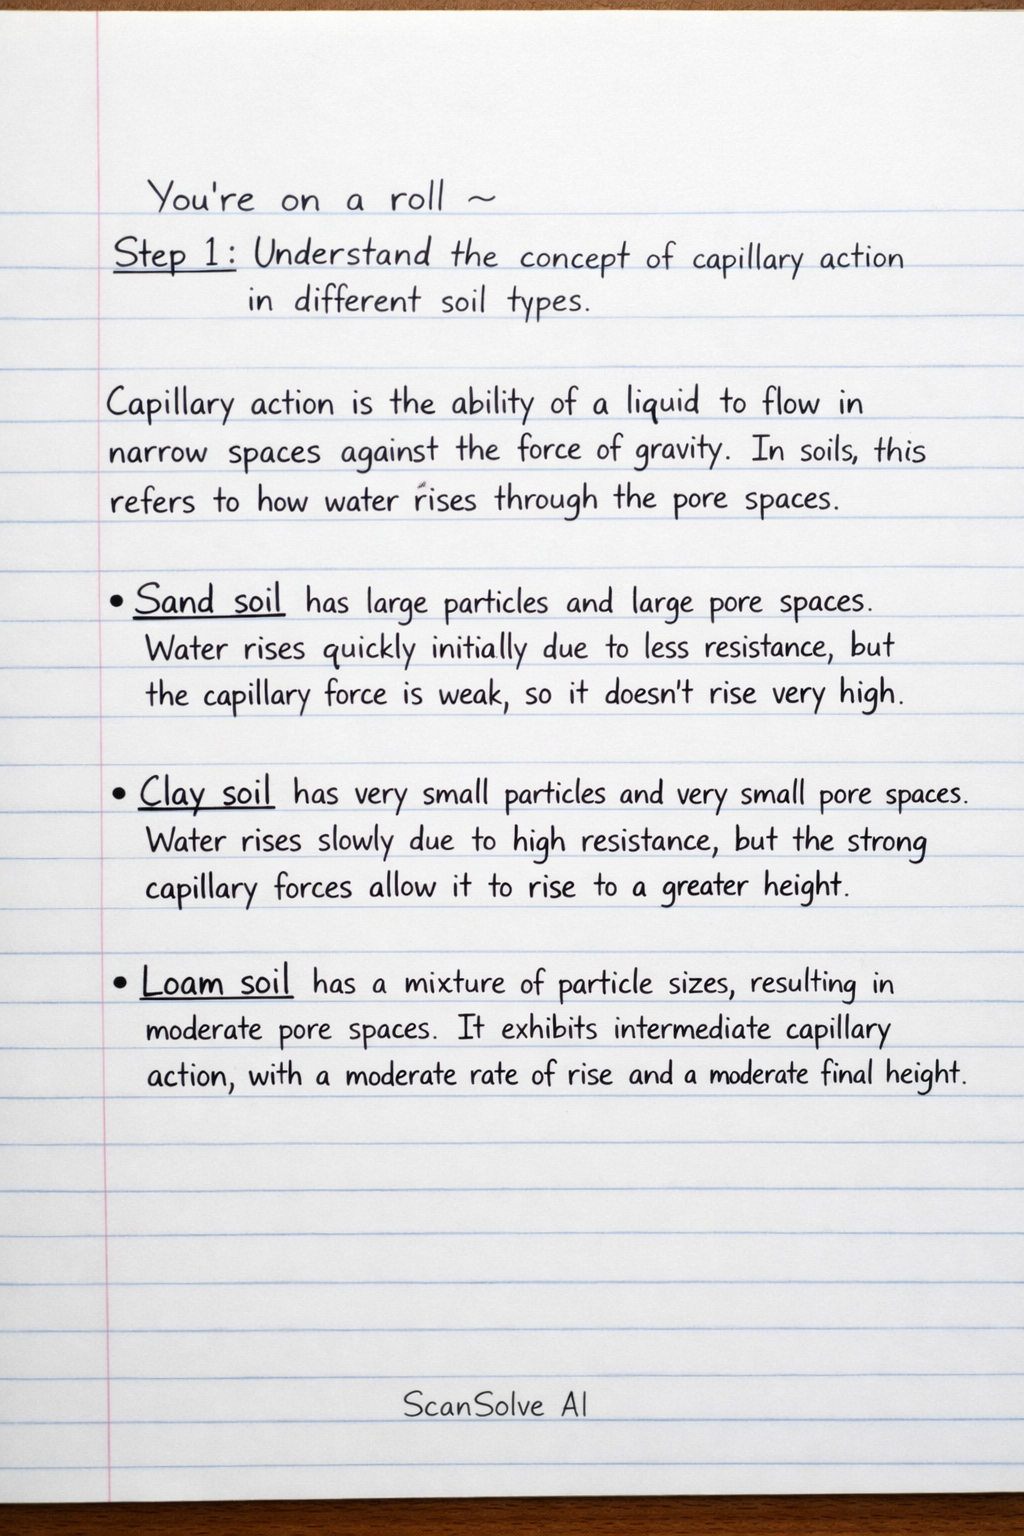 You're on a roll ~
Step 1: Understand the concept of capillary action
in different soil types.
Capillary action is the ability of a liquid to flow in
narrow spaces against the force of gravity. In soils, this
refers to how water rises through the pore spaces.
• Sand soil has large particles and large pore spaces.
Water rises quickly initially due to less resistance, but
the capillary force is weak, so it doesn't rise very high.
• Clay soil has very small particles and very small pore spaces.
Water rises slowly due to high resistance, but the strong
capillary forces allow it to rise to a greater height.
• Loam soil has a mixture of particle sizes, resulting in
moderate pore spaces. It exhibits intermediate capillary
action, with a moderate rate of rise and a moderate final height.
ScanSolve AI